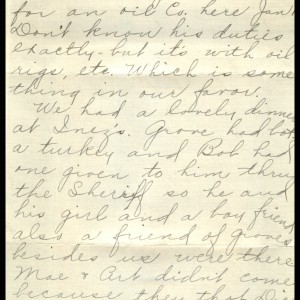 for an oil Co. here Jan.
Don't know his duties
exactly - but it's with oil
rigs, etc. Which is some
thing in our favor.
We had a lovely dinner
at Inez's. Grove had bot
a turkey and Bob had
one given to him thru
the Sheriff so he and
his girl and a boy friend
also a friend of Groves
besides us were there
Mae & Art didn't come
because they that Di